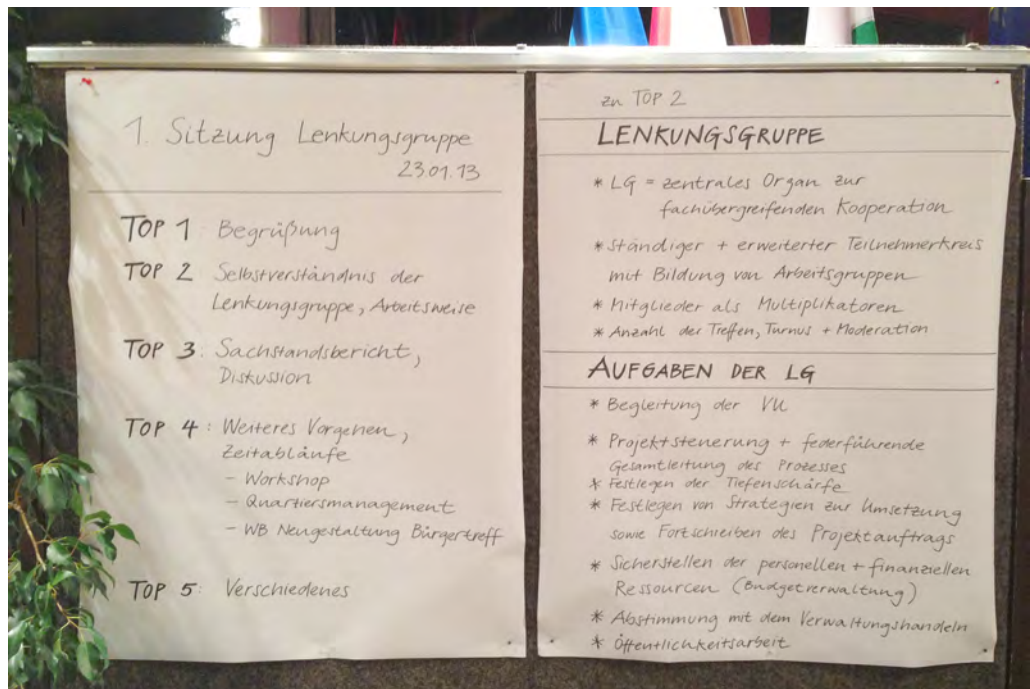 1. Sitzung Lenkungsgruppe
23.01.13
TOP 1: Begrüßung
TOP 2 Selbstverständnis der
Lenkungsgruppe, Arbeitsweise
TOP 3: Sachstandsbericht,
Diskussion
TOP 4: Weiteres Vorgehen,
Zeitabläufe
- Workshop
- Quartiersmanagement
- WB Neugestaltung Bürgertreff
TOP 5: Verschiedenes
zu TOP 2
LENKUNGSGRUPPE
* LG = zentrales Organ zur
fachübergreifenden Kooperation
* ständiger + erweiterter Teilnehmerkreis
mit Bildung von Arbeitsgruppen
* Mitglieder als Multiplikatoren
* Anzahl der Treffen, Turnus + Moderation
AUFGABEN DER LG
* Begleitung der VU
* Projektsteuerung + federführende
Gesamtleitung des Prozesses
* Festlegen der Tiefenschärfe
* Festlegen von Strategien zur Umsetzung
sowie Fortschreiben des Projektauftrags
* Sicherstellen der personellen + finanziellen
Ressourcen (Budgetverwaltung)
* Abstimmung mit dem Verwaltungshandeln
* Öffentlichkeitsarbeit